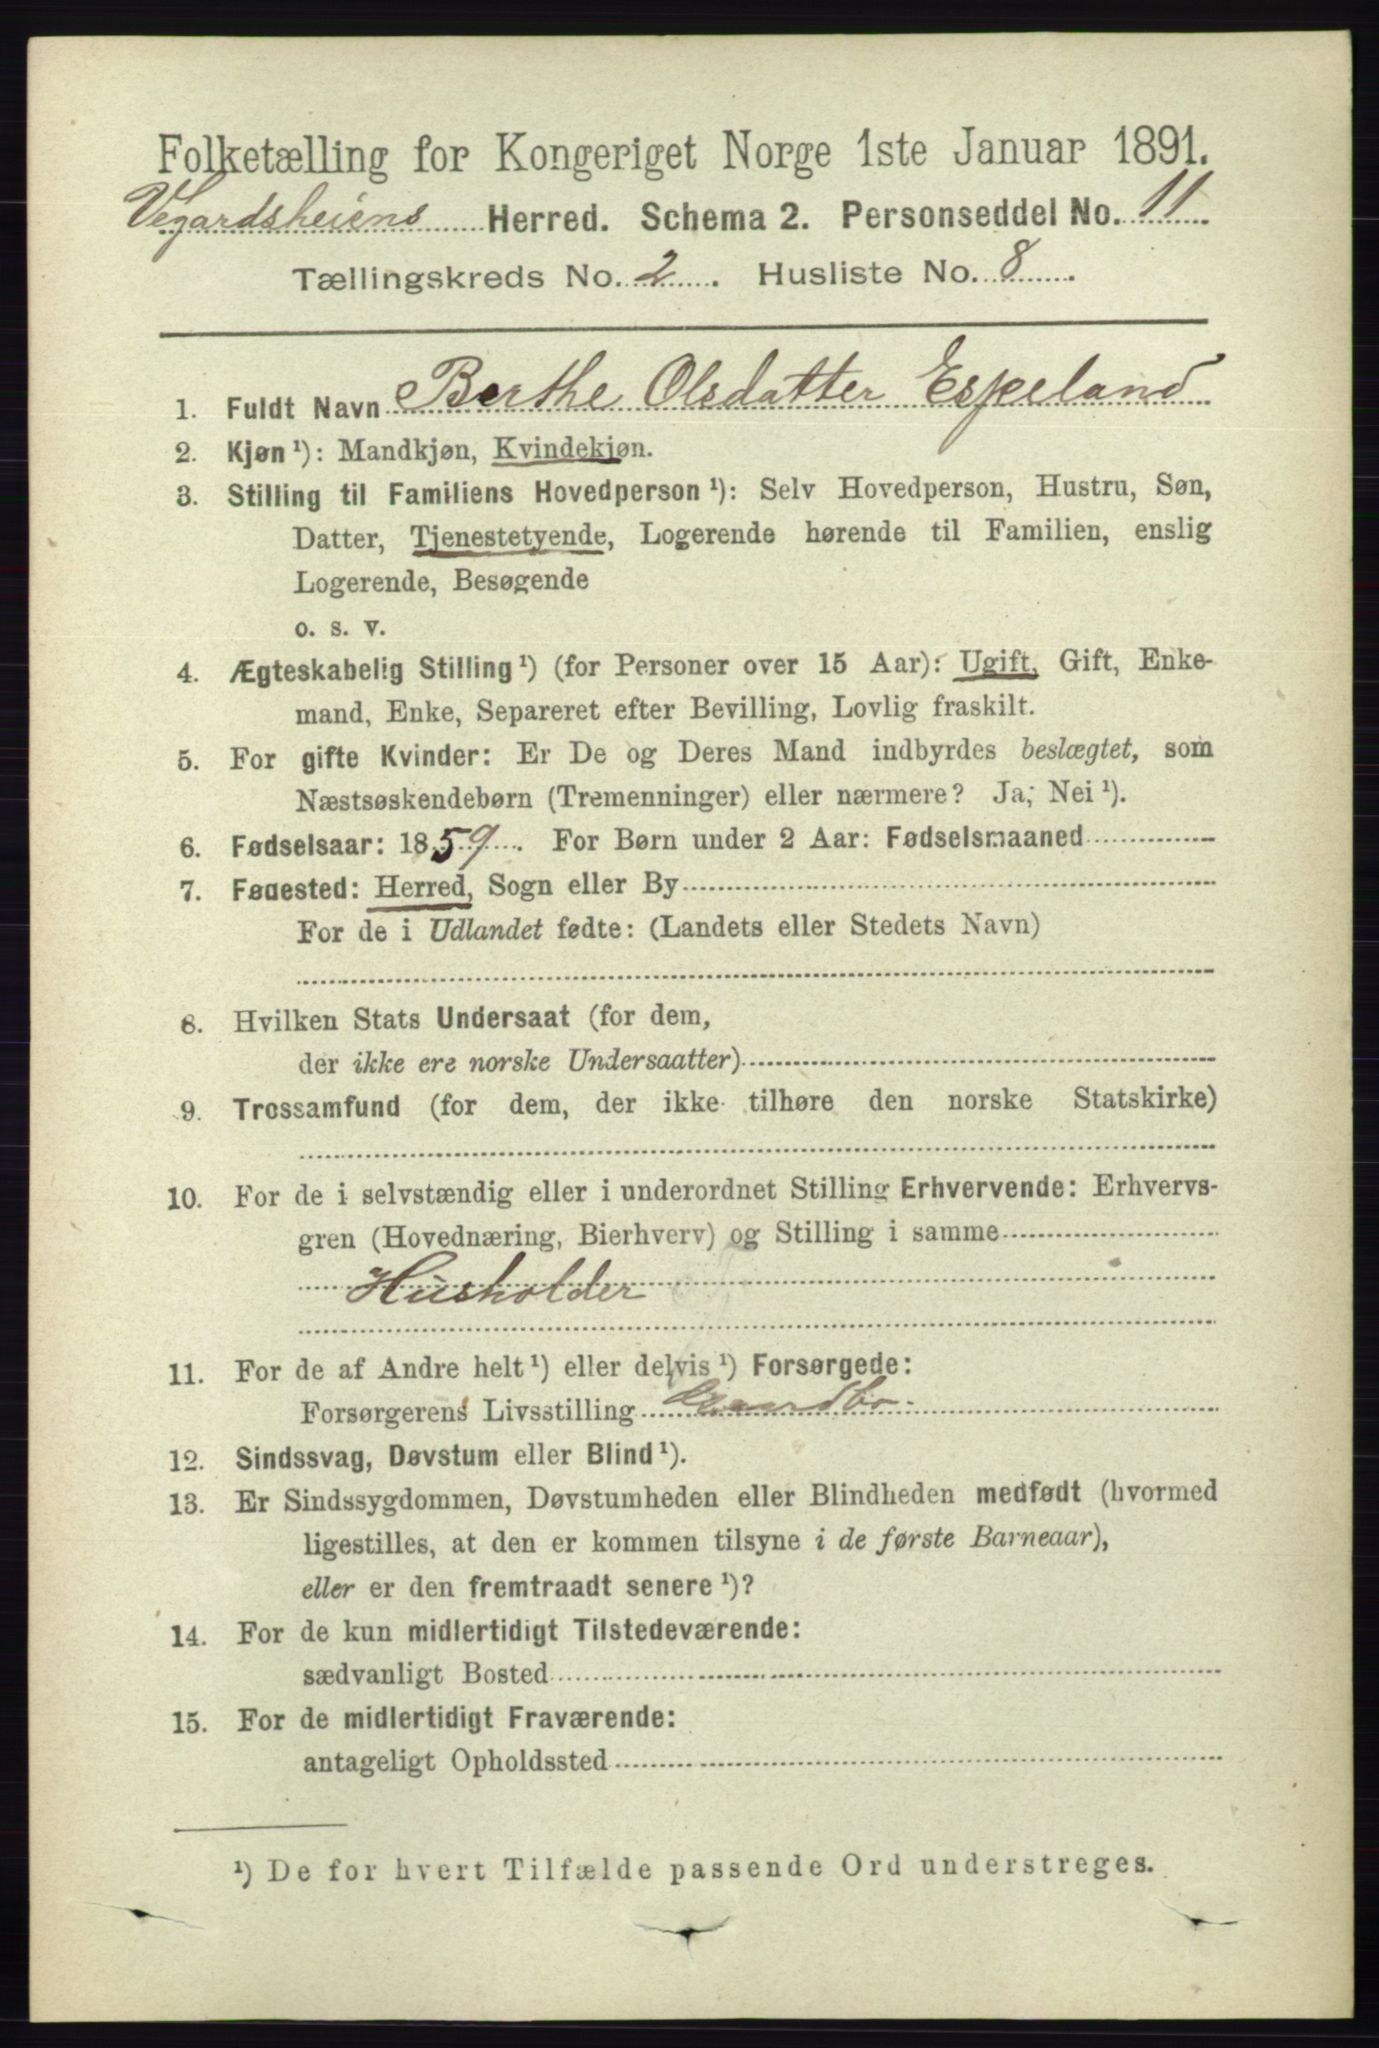 Folketælling for Kongeriget Norge 1ste Januar 1891.
Vegardsheiens Herred. Schema 2. Personseddel No. 11.
Tællingskreds No. 2. Husliste No. 8.
1. Fuldt Navn Berthe Olsdatter Espeland
2. Kjøn ¹): Mandkjøn, Kvindekjøn.
3. Stilling til Familiens Hovedperson ¹): Selv Hovedperson, Hustru, Søn,
Datter, Tjenestetyende, Logerende hørende til Familien, enslig
Logerende, Besøgende
o. s. v.
4. Ægteskabelig Stilling ¹) (for Personer over 15 Aar): Ugift, Gift, Enke-
mand, Enke, Separeret efter Bevilling, Lovlig fraskilt.
5. For gifte Kvinder: Er De og Deres Mand indbyrdes beslægtet, som
Næstsøskendebørn (Tremenninger) eller nærmere? Ja, Nei ¹).
6. Fødselsaar: 1859. For Børn under 2 Aar: Fødselsmaaned
7. Fødested: Herred, Sogn eller By
For de i Udlandet fødte: (Landets eller Stedets Navn)
8. Hvilken Stats Undersaat (for dem,
der ikke ere norske Undersaatter)
9. Trossamfund (for dem, der ikke tilhøre den norske Statskirke)
10. For de i selvstændig eller i underordnet Stilling Erhvervende: Erhvervs-
gren (Hovednæring, Bierhverv) og Stilling i samme
Husholder
11. For de af Andre helt ¹) eller delvis ¹) Forsørgede:
Forsørgerens Livsstilling Gaardbr.
12. Sindssvag, Døvstum eller Blind ¹).
13. Er Sindssygdommen, Døvstumheden eller Blindheden medfødt (hvormed
ligestilles, at den er kommen tilsyne i de første Barneaar),
eller er den fremtraadt senere ¹)?
14. For de kun midlertidigt Tilstedeværende:
sædvanligt Bosted
15. For de midlertidigt Fraværende:
antageligt Opholdssted
¹) De for hvert Tilfælde passende Ord understreges.